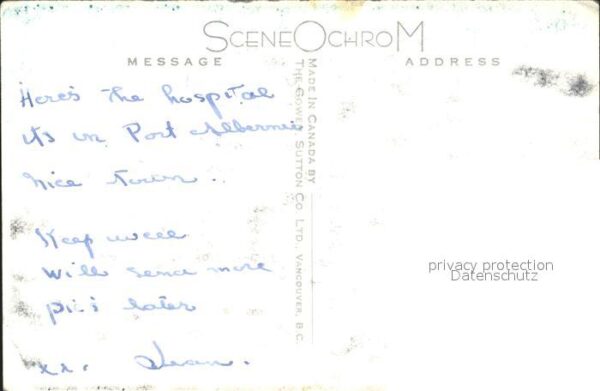 SCENEOCHROM
MESSAGE
ADDRESS
Here's the hospital
its in Port Albernie
Nice town.
Keep well
will send more
pic's later
xx. Jean.
MADE IN CANADA BY
THE GOWEN SUTTON CO. LTD., VANCOUVER, B.C.
privacy protection
Datenschutz